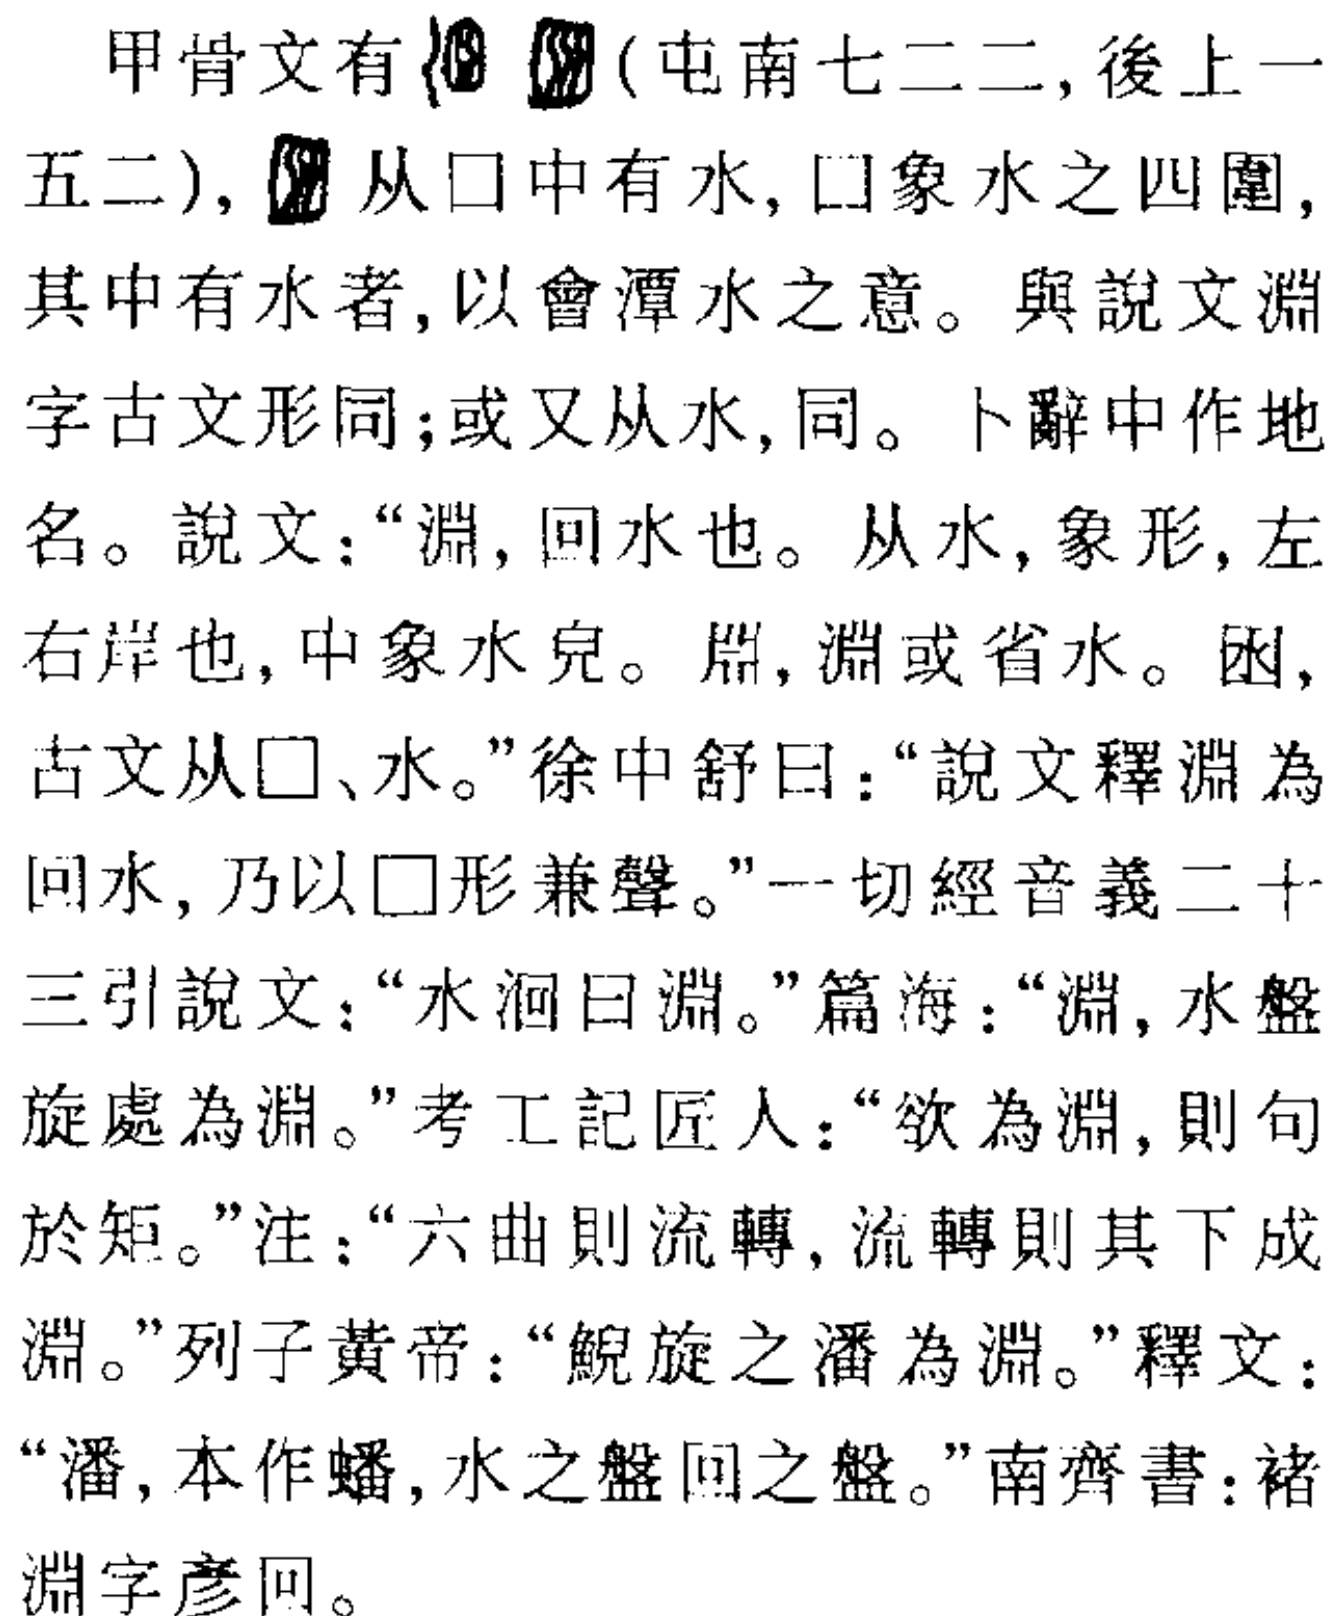 甲骨文有 (屯南七二二,後上一
五二), 从囗中有水,囗象水之四圍,
其中有水者,以會潭水之意。與說文淵
字古文形同;或又从水,同。卜辭中作地
名。說文:“淵,回水也。从水,象形,左
右岸也,中象水皃。𣶒,淵或省水。囦,
古文从囗、水。”徐中舒曰:“說文釋淵為
回水,乃以囗形兼聲。”一切經音義二十
三引說文:“水洄曰淵。”篇海:“淵,水盤
旋處為淵。”考工記匠人:“欲為淵,則句
於矩。”注:“六曲則流轉,流轉則其下成
淵。”列子黃帝:“鯢旋之潘為淵。”釋文:
“潘,本作蟠,水之盤回之盤。”南齊書:褚
淵字彥回。